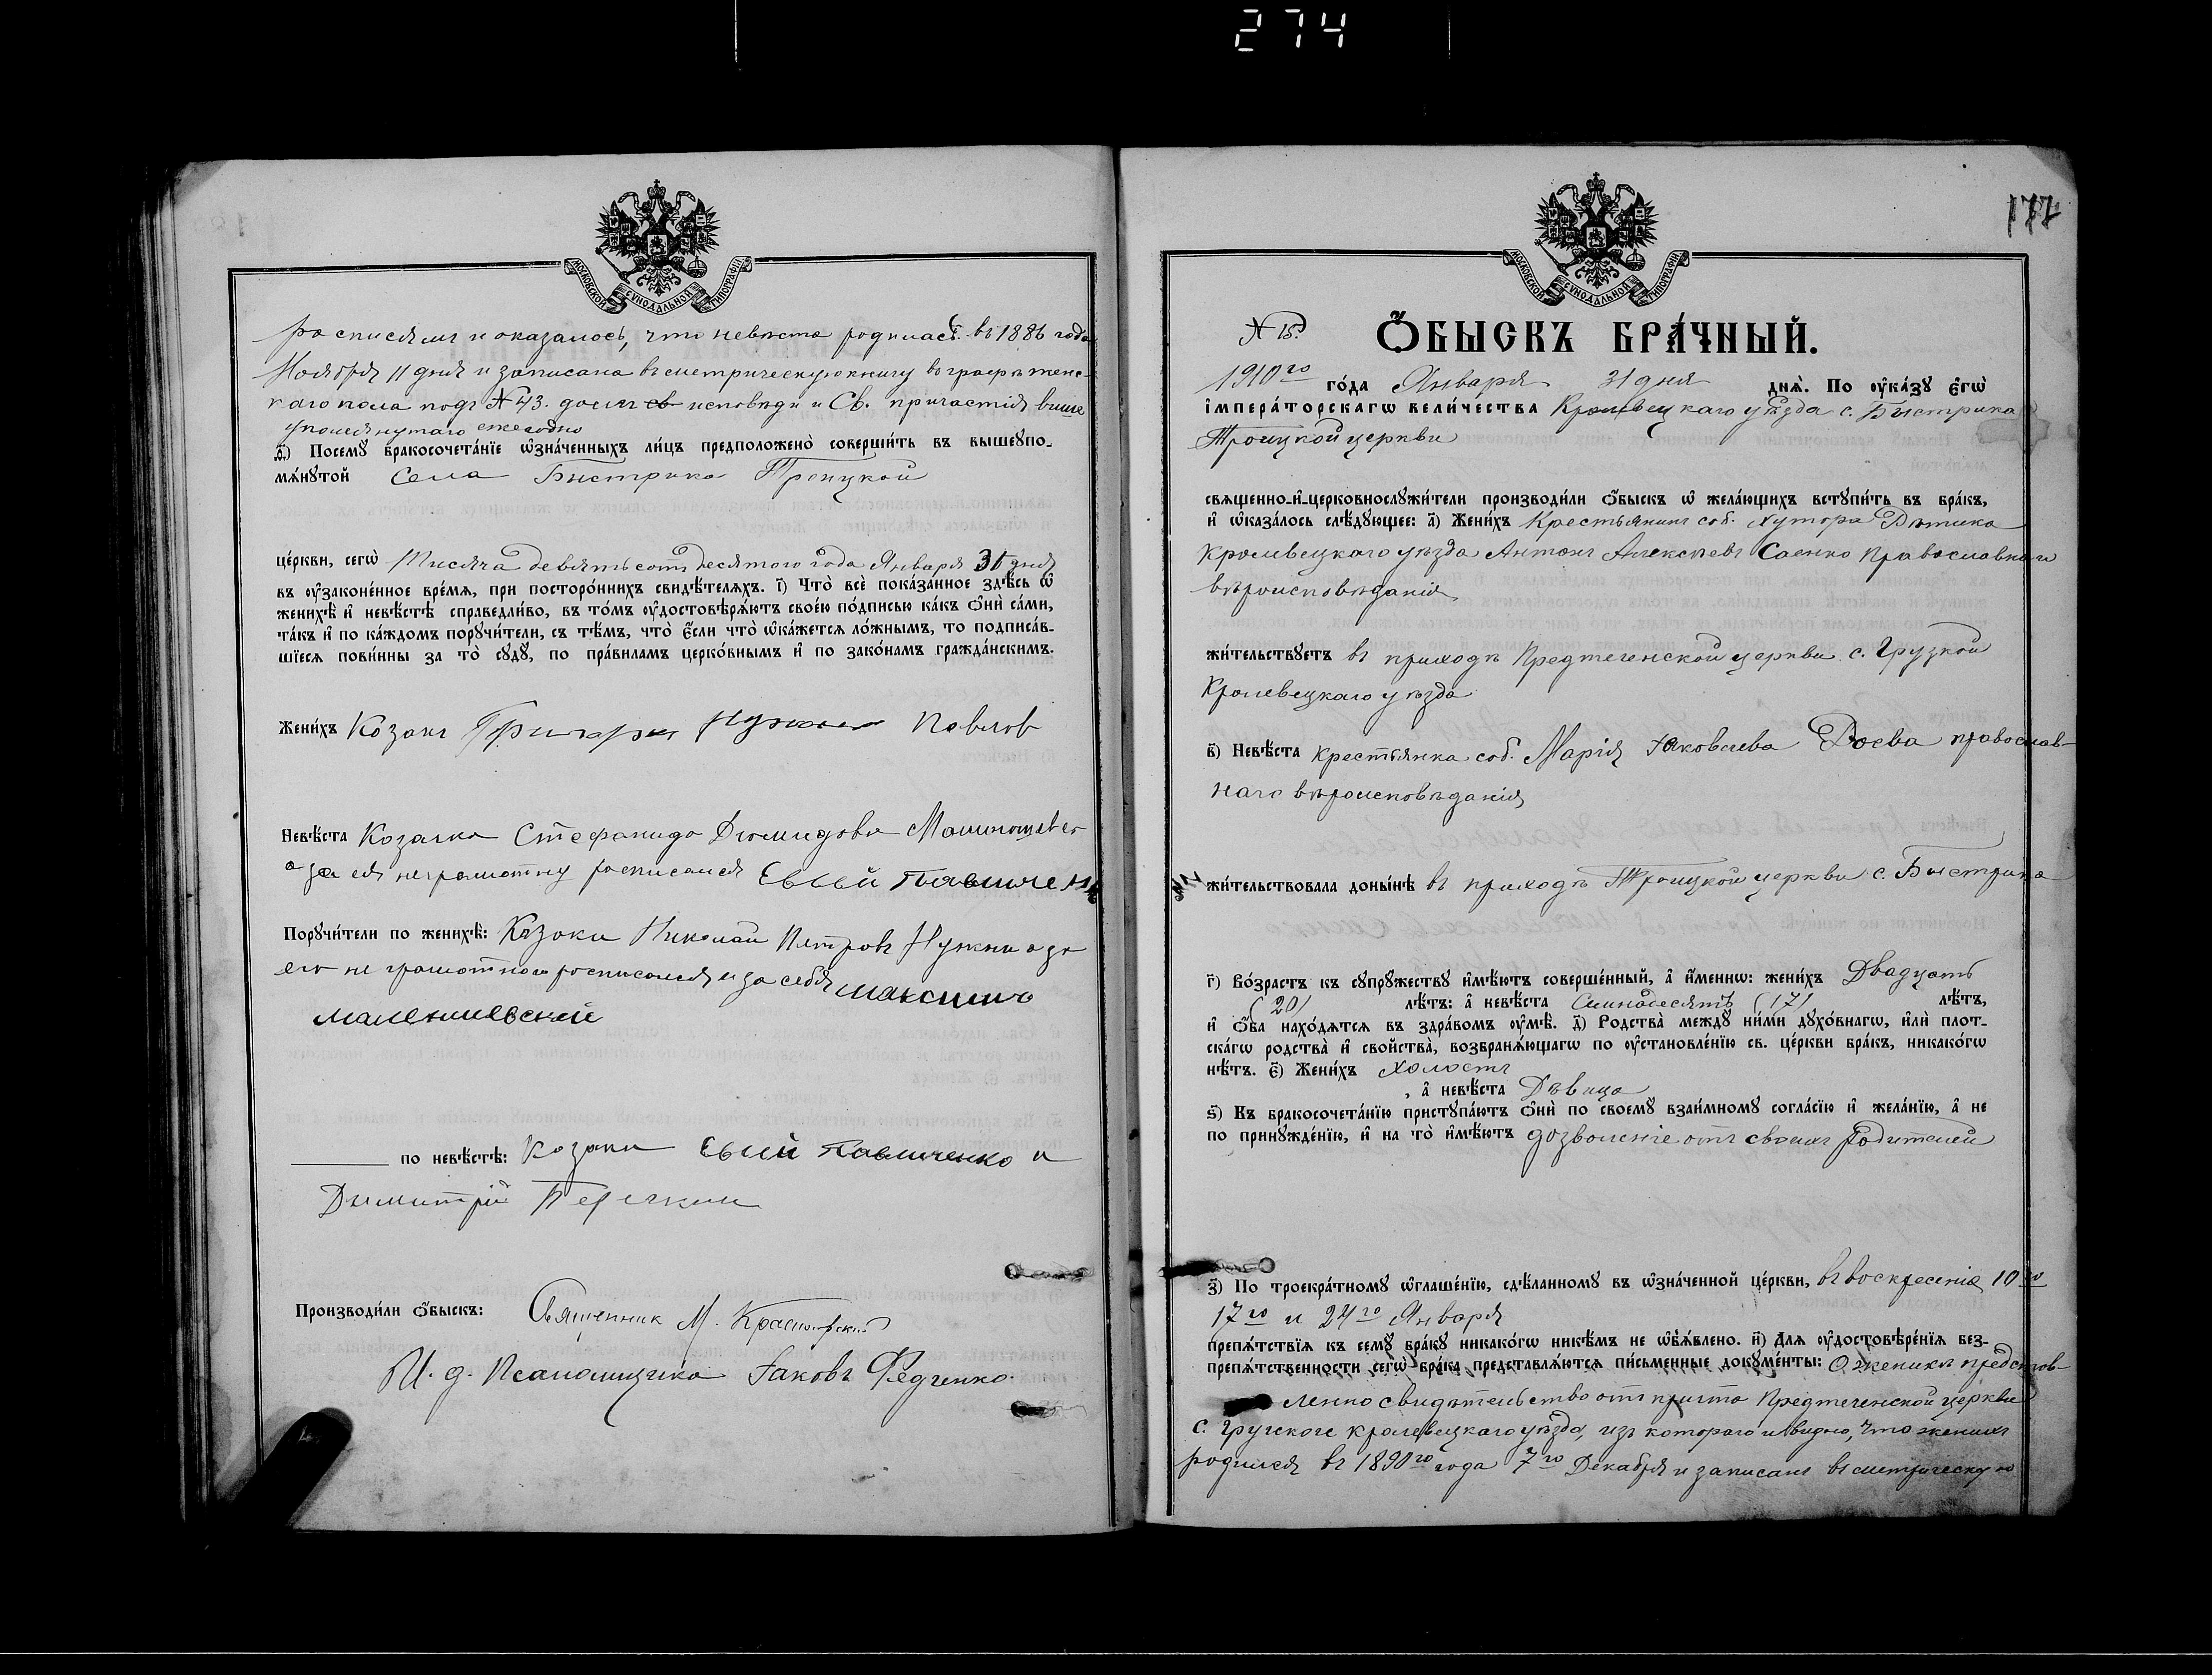 274
МОСКОВСКОЙ СѴНОДАЛЬНОЙ ТИПОГРАФІИ
росписямъ и оказалось, что невѣста родилась въ 1886 году
Ноября 11 дня и записана въ метрическую книгу въ графѣ женс-
каго пола подъ № 43. долгъ св исповѣди и Св. причастія выше
упомянутаго ежегодно
д҃) Посемꙋ̀ бракосочета́нїе ѡ҆зна́ченныхъ ли́цъ предположено̀ соверши́ть въ вышеꙋпо-
мѧ́нꙋтой Села Быстрика Троицкой
це́ркви, сегѡ̀ Тысяча девятьсотъ десятого года Января 31 дня
въ ᲂу҆законе́нное вре́мѧ, при посторо́ннихъ свидѣ́телѧхъ. і҃) Что̀ всѐ пока́занное здѣ́сь ѡ҆
женихѣ̀ и҆ невѣ́стѣ справедли́во, въ то́мъ ᲂу҆достовѣрѧ́ютъ свое́ю по́дписью ка́къ ѻ҆нѝ са́ми,
та́къ и҆ по ка́ждомъ порꙋчи́тели, съ тѣ́мъ, что̀ є҆́сли что̀ ѡ҆ка́жетсѧ ло́жнымъ, то подписа́в-
шїесѧ пови́нны за то̀ сꙋдꙋ̀, по пра́виламъ церко́внымъ и҆ по зако́намъ гражда́нскимъ.
Жени́хъ Козакъ Григорій Павлов
Невѣ́ста Козачка Стефанида Діомидова
а за ея неграмотну росписался Евсей Павличен
Порꙋчи́тели по женихѣ̀: Козаки Николай Петровъ Нужни а за
его не грамотного росписался и за себя Максимъ
Малениевский
по невѣ́стѣ: Козаки Евсей Павличенко и
Димитрій
Производи́ли ѻ҆́быскъ: Священник М.
И. д. Псаломщика Іаковъ Федченко.
177
МОСКОВСКОЙ СѴНОДАЛЬНОЙ ТИПОГРАФІИ
№ 15.
Ѻ҆́БЫСКЪ БРА́ЧНЫЙ.
1910го го́да Января 31 дня днѧ̀. По ᲂу҆ка́зꙋ Є҆гѡ̀
І҆мпера́торскагѡ Вели́чества Кролевецкаго уѣзда с. Быстрика
Троицкой церкви
свѧщенно-и҆-церковнослꙋжи́тели производи́ли ѻ҆́быскъ ѡ҆ жела́ющихъ встꙋпи́ть въ бра́къ,
и҆ ѡ҆каза́лось слѣ́дꙋющее: а҃) Жени́хъ Крестьянинъ соб. Хутора Вѣтика
Кролевецкаго уѣзда Антонъ Алексѣевъ Саенко Православнаго
вѣроисповѣданія
жи́тельствꙋетъ въ приходѣ Предтеченской церкви с. Грузкой
Кролевецкаго уѣзда
в҃) Невѣ́ста крестьянка соб. Марія Іаковлева Роева православ-
наго вѣроисповѣданія
жи́тельствовала доны́нѣ въ приходѣ Троицкой церкви с. Быстрика
г҃) Во́зрастъ къ сꙋпрꙋжествꙋ̀ и҆мѣ́ютъ соверше́нный, а҆ и҆́меннѡ: жени́хъ Двадцать
(20) лѣ́тъ: а҆ невѣ́ста Семнадесять (17) лѣ́тъ,
и҆ ѻ҆́ба нахо́дѧтсѧ въ здра́вомъ ᲂу҆мѣ̀. д҃) Родства̀ междꙋ̀ ни́ми дꙋхо́внагѡ, и҆лѝ плот-
ска́гѡ родства̀ и҆ свойства̀, возбранѧ́ющагѡ по ᲂу҆становле́нїю св. це́ркви бра́къ, никако́гѡ
нѣ́тъ. є҃) Жени́хъ холостъ
, а҆ невѣ́ста Дѣвица
ѕ҃) Къ бракосочета́нїю пристꙋпа́ютъ ѻ҆нѝ по своемꙋ̀ взаи́мномꙋ согла́сїю и҆ жела́нїю, а҆ не
по принꙋжде́нїю, и҆ на то̀ и҆мѣ́ютъ дозволеніе отъ своихъ родителей
з҃) По троекра́тномꙋ ѡ҆глаше́нїю, сдѣ́ланномꙋ въ ѡ҆зна́ченной це́ркви, въ воскресенія 10го
17го и 24го Января
препѧ́тствїѧ къ семꙋ̀ бра́кꙋ никако́гѡ никѣ́мъ не ѡ҆б̾ѧ́влено. и҃) Длѧ̀ ᲂу҆достовѣре́нїѧ без-
препѧ́тственности сегѡ̀ бра́ка представлѧ́ютсѧ пи́сьменные докꙋме́нты: О женихѣ представ-
лено свидѣтельство отъ причта Предтеченской церкви
с. Грузкого Кролевецкаго уѣзда, изъ котораго и видно, что женихъ
родился въ 1890го года 7го Декабря и записанъ въ метрическую